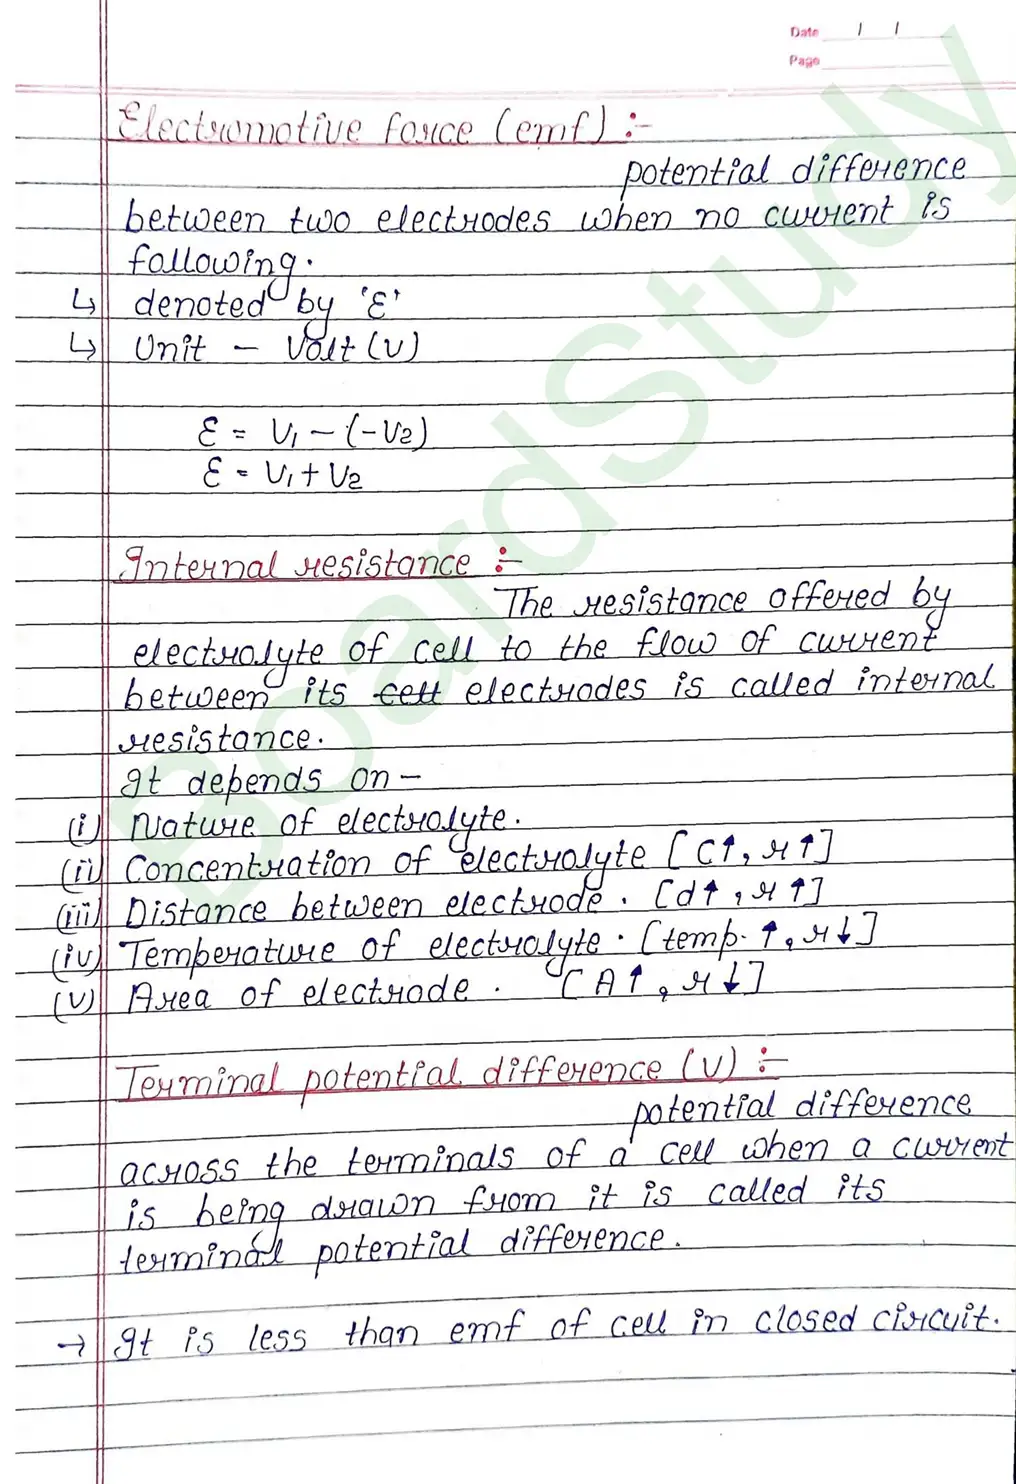 Date / /
Page
Electromotive force (emf) :-
potential difference
between two electrodes when no current is
following.
↳ denoted by 'ε'
↳ Unit - Volt (V)
ε = V₁ - (-V₂)
ε = V₁ + V₂
Internal resistance :-
The resistance offered by
electrolyte of cell to the flow of current
between its cell electrodes is called internal
resistance.
It depends on -
(i) Nature of electrolyte.
(ii) Concentration of electrolyte [C↑, r↑]
(iii) Distance between electrode. [d↑, r↑]
(iv) Temperature of electrolyte. [temp. ↑, r↓]
(v) Area of electrode. [A↑, r↓]
Terminal potential difference (V) :-
potential difference
across the terminals of a cell when a current
is being drawn from it is called its
terminal potential difference.
→ It is less than emf of cell in closed circuit.
BoardStudy